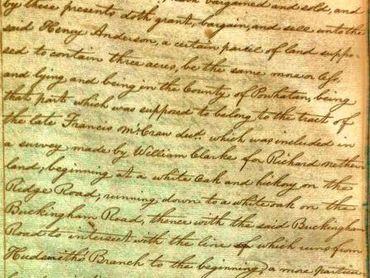 bargained and sold, and
by these presents doth grant, bargain, and sell unto the
said Henry Anderson, a certain parcel of land suppo-
sed to contain three acres, be the same more or less,
and lying and being in the County of Powhatan, being
that part which was supposed to belong to the tract of
the late Francis McCraw but which was included in
a survey made by William Clarke for Richard
land, beginning at a white Oak and hickory on the
Ridge Road, running down to a white oak on the
Buckingham Road, thence with the said Buckingham
Road to intersect with the line which runs from
Branch to the beginning, a more particu